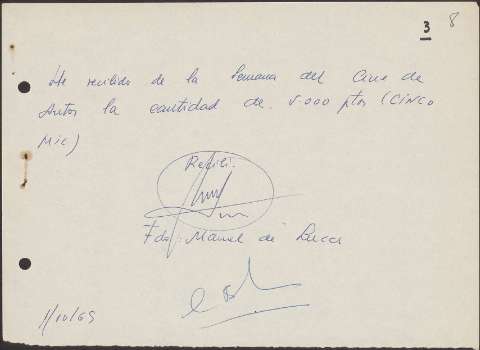 3 8
He recibido de la Semana del Cine de
Autor la cantidad de 5.000 ptas (CINCO
MIL)
Recibí.
Fdo. Manuel de
1/10/69